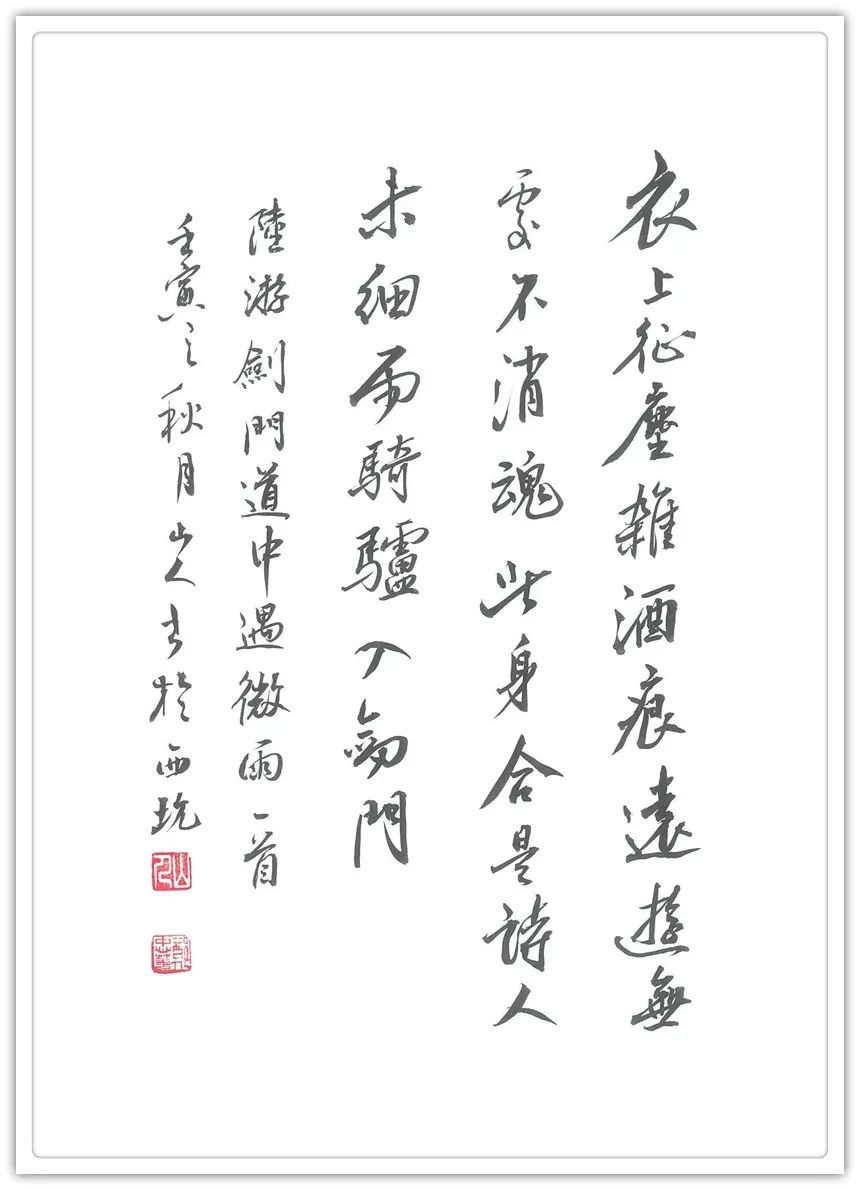 衣上征塵雜酒痕遠遊無
處不消魂此身合是詩人
未細雨騎驢入劍門
陸游劍門道中遇微雨一首
壬寅之秋月山人書於西坑
山人